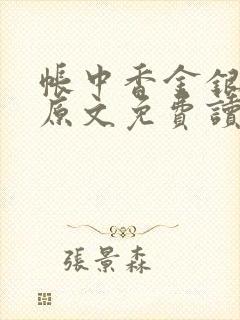 帳中香金銀
原文免費讀
張景森